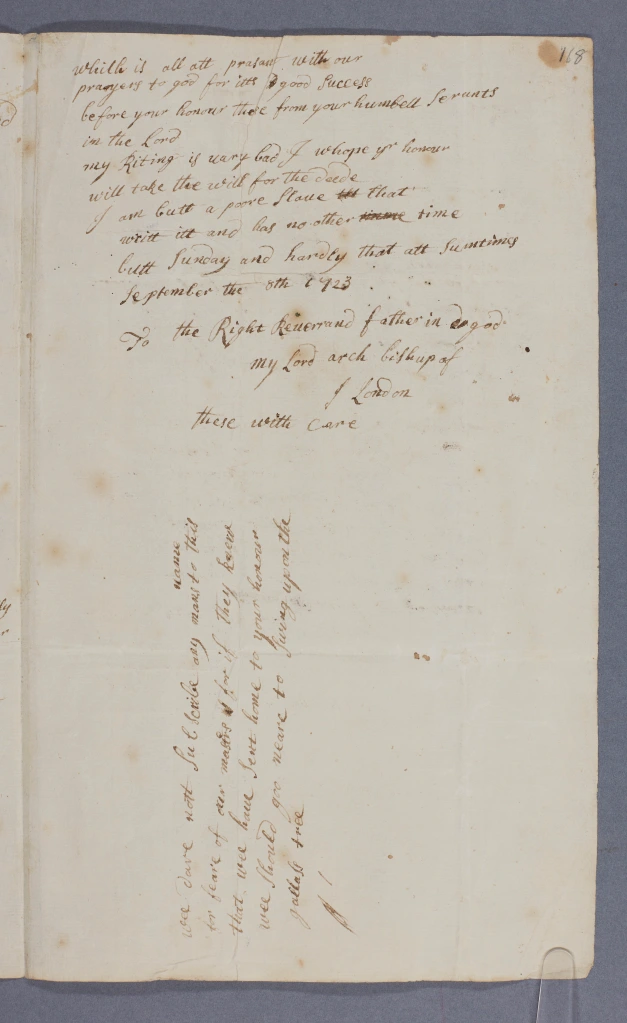 118
whilh is all att prasant with our
prayers to god for itts good Success
before your honour these from your humbell Servants
in the Lord
my Riting is vary bad I whope yr honour
will take the will for the deede
I am butt a poore Slave that
writt itt and has no other time
butt Sunday and hardly that att Sumtimes
September the 8th 1723
To the Right Reverrand father in god
my Lord arch bishup of
J London
these with care
wee dare nott Subscribe any mans name to this
for feare of our masters for if they knew
that wee have Sent home to your honour
wee Should goo neare to Swing upon the
gallass tree